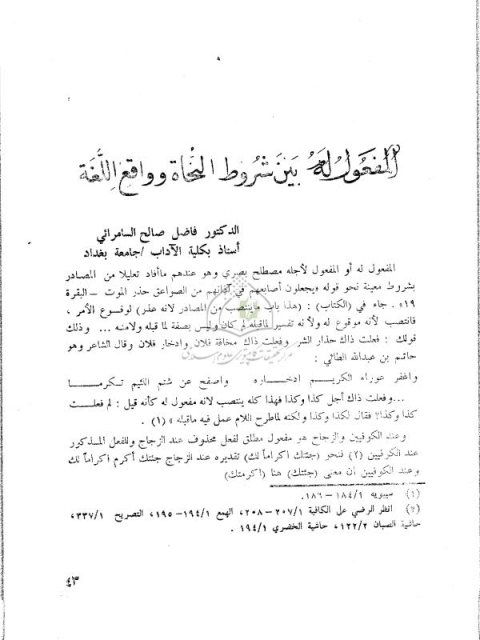 المفعول له بين شروط النحاة وواقع اللغة
الدكتور فاضل صالح السامرائي
أستاذ بكلية الآداب / جامعة بغداد
المفعول له أو المفعول لأجله مصطلح بصري وهو عندهم ماأفاد تعليلا من المصادر
بشروط معينة نحو قوله ويجعلون أصابعهم في آذانهم من الصواعق حذر الموت - البقرة
١٩» . جاء في (الكتاب) : (هذا باب ماينتصب من المصادر لأنه عذر) لوقوع الأمر ،
فانتصب لأنه موقوع له ولأنه تفسير لماقبله لم كان وليس بصفة لما قبله ولامنه ... وذلك
قولك : فعلت ذاك حذار الشر وفعلت ذاك مخافة فلان وادخار فلان وقال الشاعر وهو
حاتم بن عبدالله الطائي :
واغفر عوراء الكريم ادخاره واصفح عن شتم اللئيم تكرما
...وفعلت ذاك أجل كذا وكذا فهذا كله ينتصب لأنه مفعول له كأنه قيل : لم فعلت
كذا وكذا؟ فقال لكذا وكذا ولكنه لماطرح اللام عمل فيه ماقبله » (١) .
وعند الكوفيين والزجاج هو مفعول مطلق لفعل محذوف عند الزجاج وللفعل المذكور
عند الكوفيين (٢) فنحو (جئتك اكراماً لك) تقديره عند الزجاج جئتك أكرم اكراماً لك
وعند الكوفيين ان معنى (جئتك) هنا (اكرمتك)
(١) سيبويه ١/١٨٤-١٨٦ .
(٢) انظر الرضي على الكافية ١/٢٠٧-٢٠٨، الهمع ١/١٩٤-١٩٥، التصريح ١/٣٣٧،
حاشية الصبان ٢/١٢٢، حاشية الخضري ١/١٩٤ .
٤٣